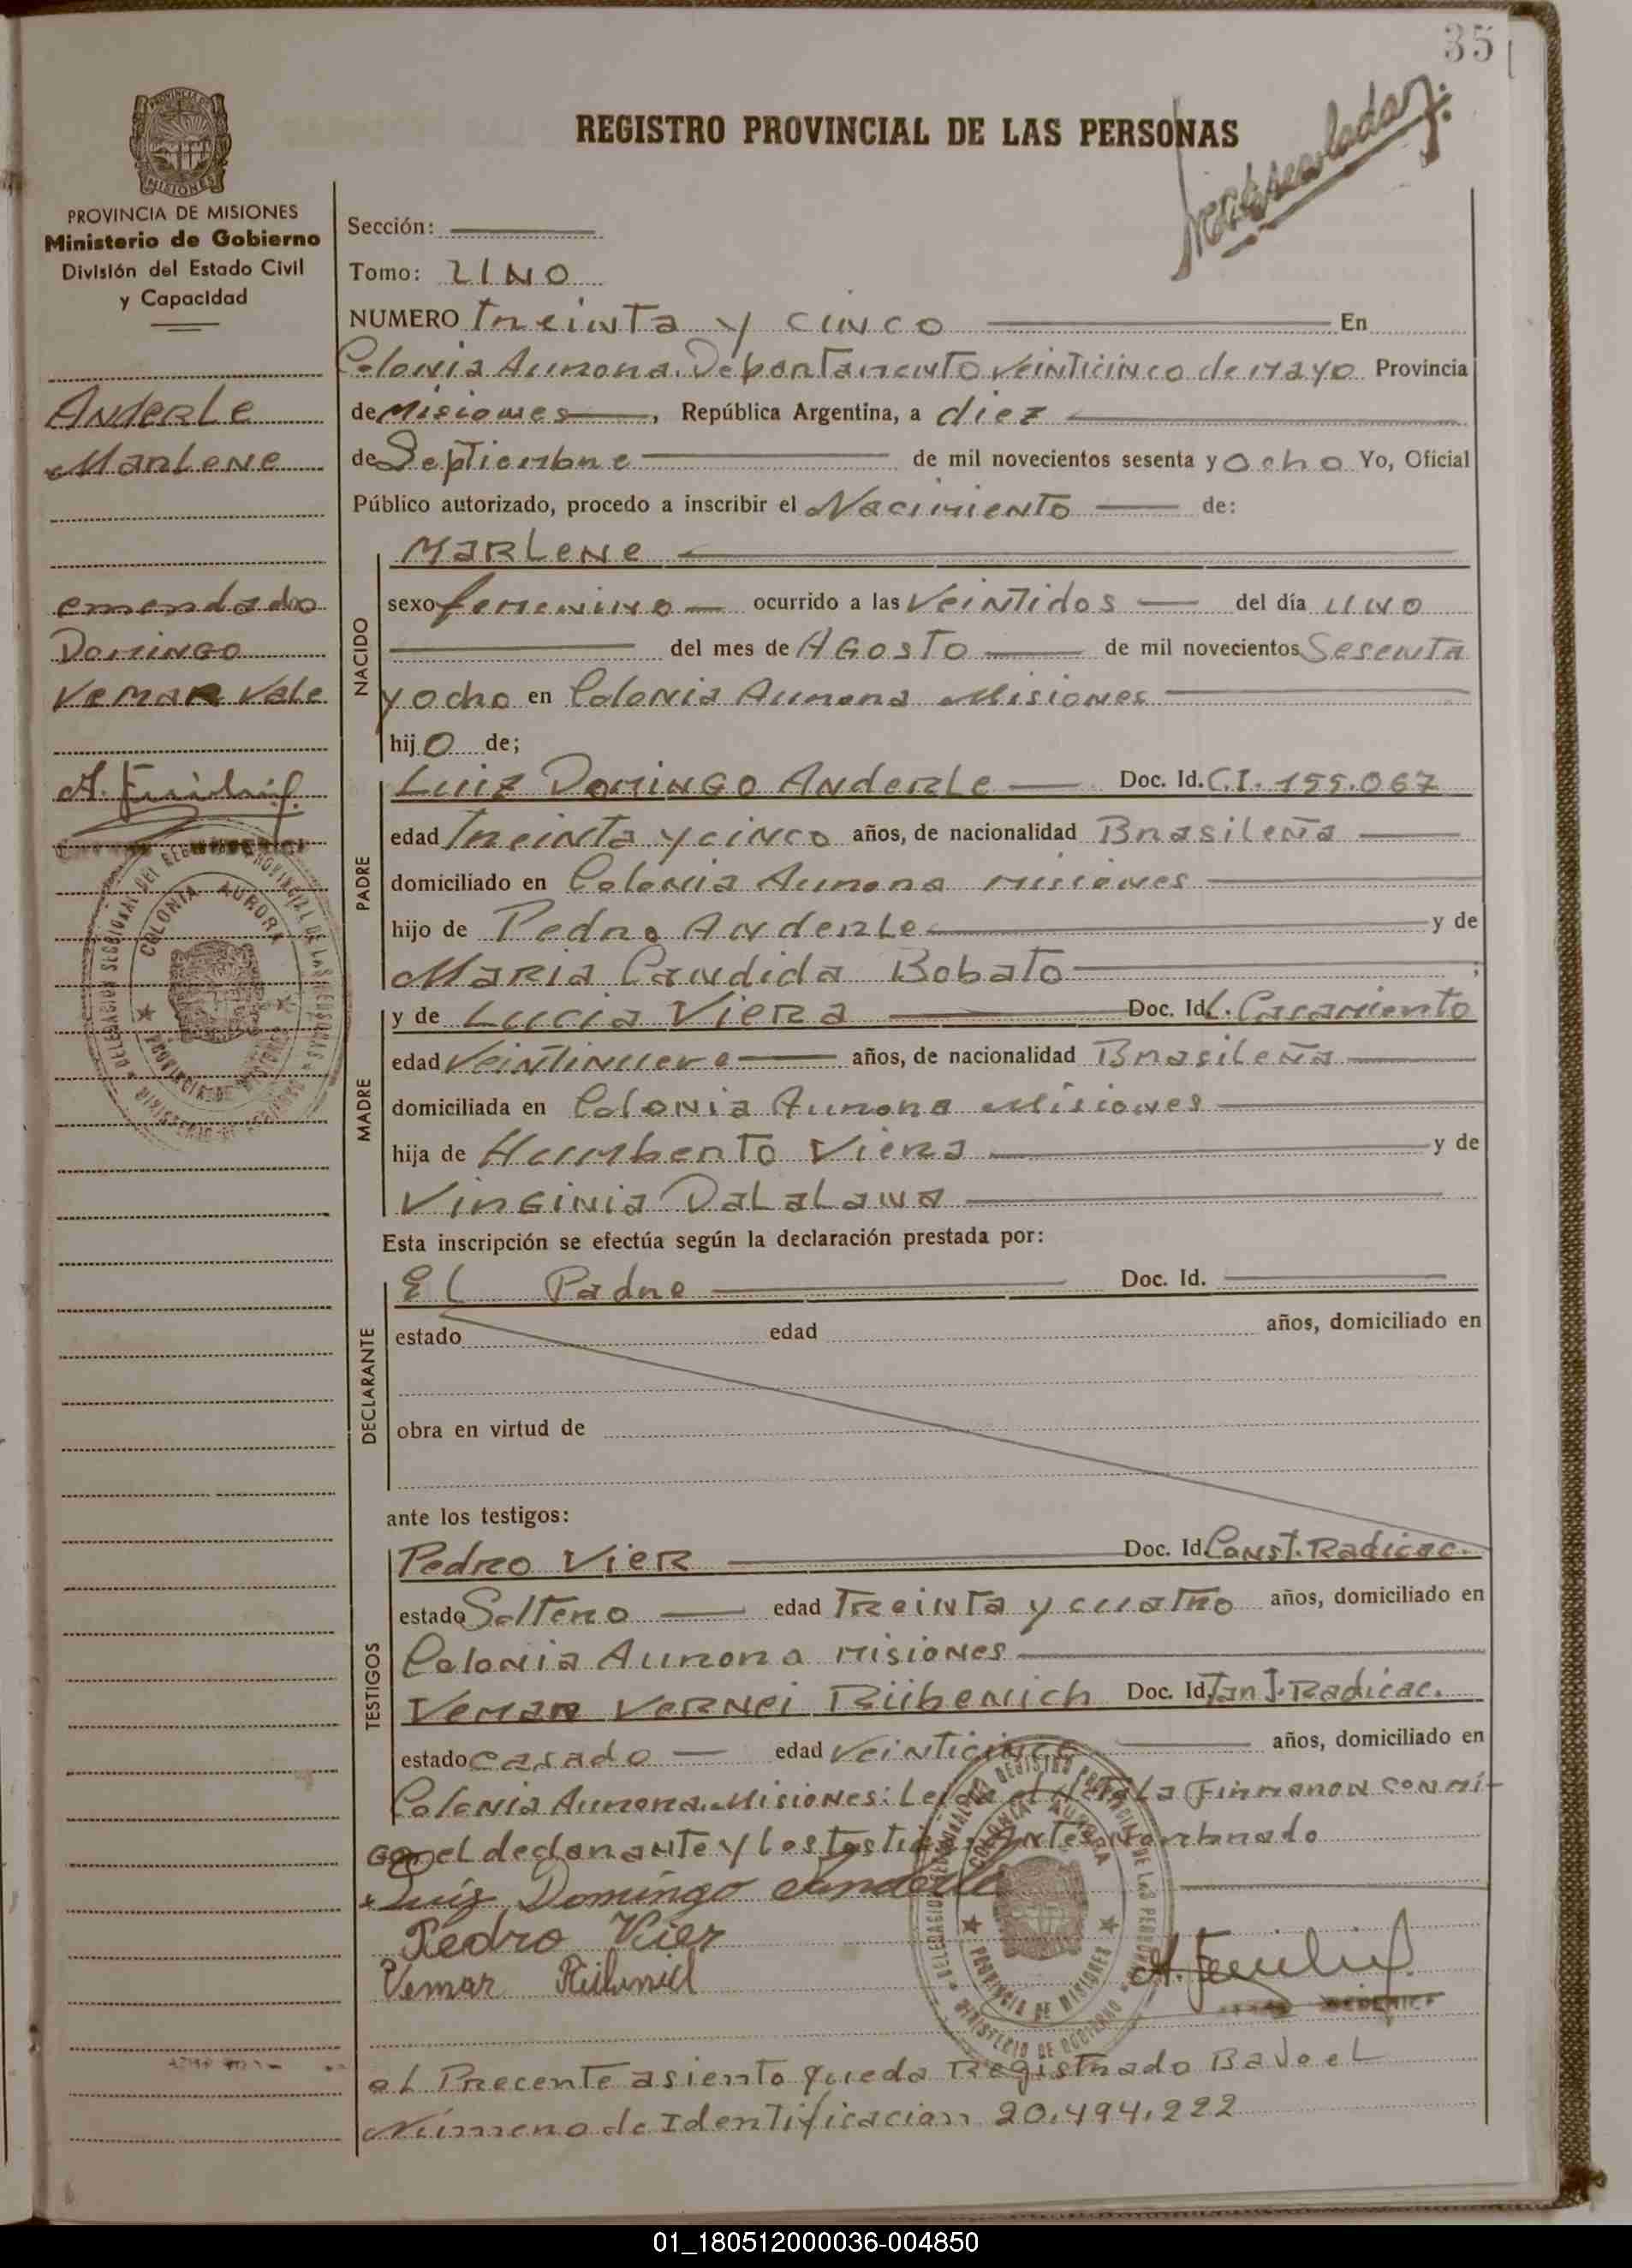 35
REGISTRO PROVINCIAL DE LAS PERSONAS
PROVINCIA DE MISIONES
Ministerio de Gobierno
División del Estado Civil
y Capacidad
Anderle
Marlene
emendado
Domingo
Vemar Vale
Sección:
Tomo: UNO
NUMERO Treinta y cinco En
Colonia Aurora. Departamento veinticinco de mayo Provincia
de Misiones, República Argentina, a diez
de Septiembre de mil novecientos sesenta y ocho Yo, Oficial
Público autorizado, procedo a inscribir el Nacimiento de:
NACIDO
Marlene
sexo femenino ocurrido a las Veintidos del día uno
del mes de Agosto de mil novecientos Sesenta
y ocho en Colonia Aurora Misiones
hijo de;
PADRE
Luiz Domingo Anderle Doc. Id. C.I. 155.067
edad Treinta y cinco años, de nacionalidad Brasileña
domiciliado en Colonia Aurora misiones
hijo de Pedro Anderle y de
Maria Candida Bobato;
MADRE
y de Lucia Viera Doc. Id. L. Casamiento
edad Veintinueve años, de nacionalidad Brasileña
domiciliada en Colonia Aurora Misiones
hija de Humberto Viera y de
Virginia Dalalana
Esta inscripción se efectúa según la declaración prestada por:
DECLARANTE
El Padre Doc. Id.
estado edad años, domiciliado en
obra en virtud de
ante los testigos:
TESTIGOS
Pedro Vier Doc. Id. Const. Radicac.
estado Soltero edad Treinta y cuatro años, domiciliado en
Colonia Aurora misiones
Vemar Vernei Rübenich Doc. Id. Tarj. Radicac.
estado casado edad Veinticinco años, domiciliado en
Colonia Aurora. Misiones: Leida el Acta La Firmaron con mi-
go el declarante y los testigos Antes nombrado
Luiz Domingo Anderle
Pedro Vier
Vemar Rübenich
DELEGACION SECCIONAL DEL REGISTRO PROVINCIAL DE LAS PERSONAS
COLONIA AURORA
PROVINCIA DE MISIONES
MINISTERIO DE GOBIERNO
el Precente asiento queda Registrado Bajo el
Número de Identificacion 20.494.222
01_180512000036-004850